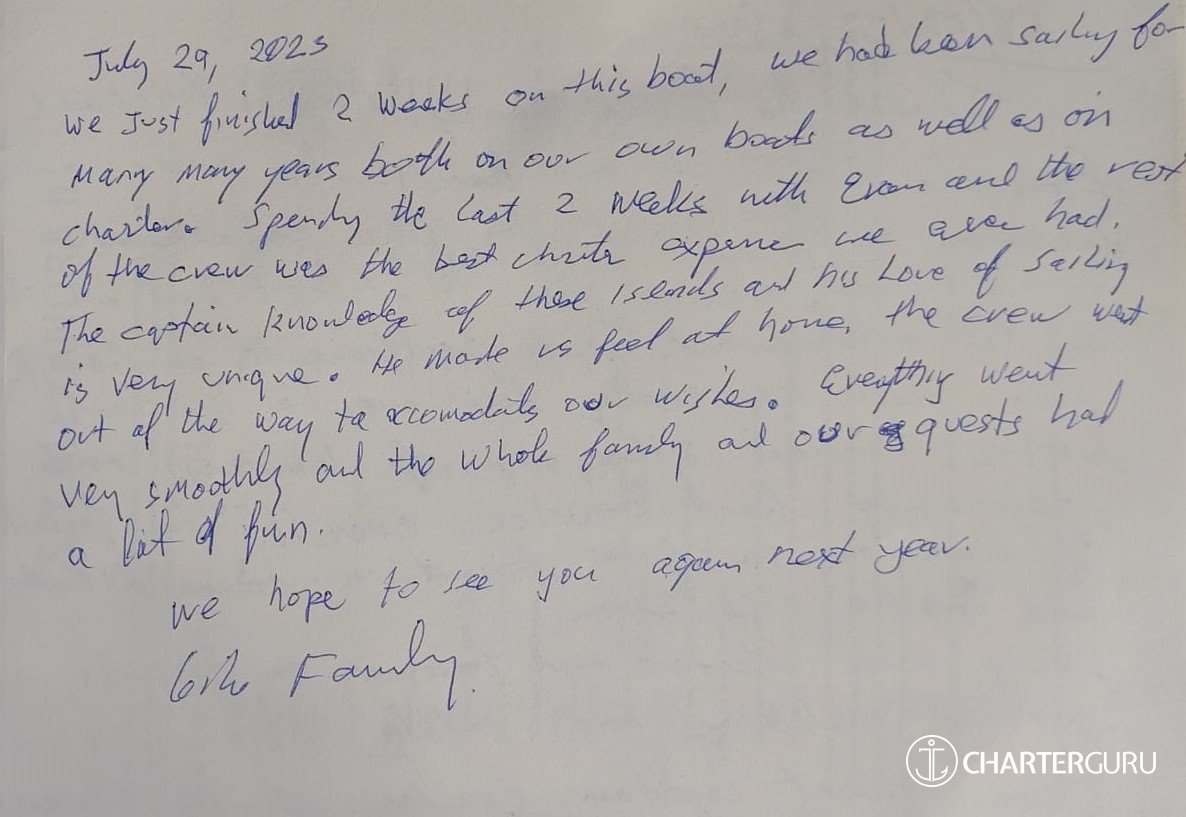 July 29, 2023
we Just finished 2 weeks on this boat, we had been sailing for
many many years both on our own boats as well as on
charter. Spending the last 2 weeks with and the rest
of the crew was the best charter we ever had.
The captain knowledge of these Islands and his Love of sailing
is very unique. He made us feel at home, the crew went
out of the way to accomodate our wishes. Everything went
very smoothly and the whole family and our guests had
a lot of fun.
we hope to see you again next year.
Family.
CHARTERGURU